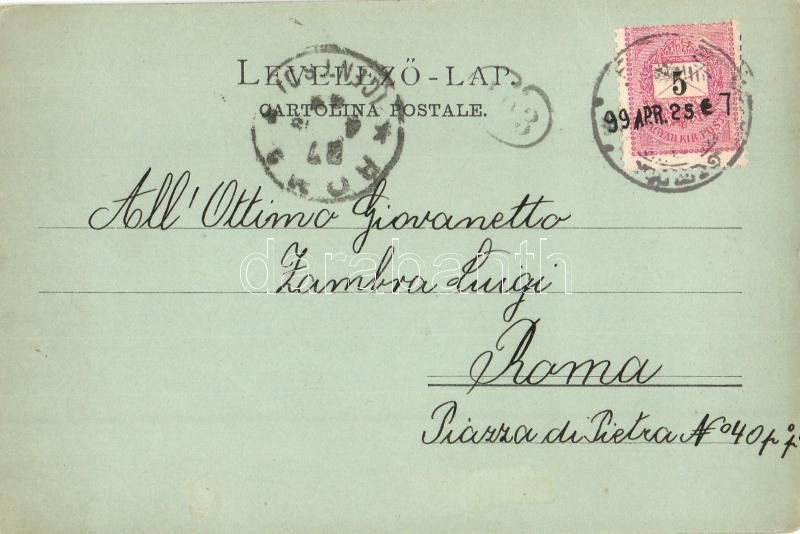 LEVELEZŐ-LAP.
CARTOLINA POSTALE.
5
MAGYAR KIR. POSTA
99 APR. 25
ROMA
All' Ottimo Giovanetto
Zambra Luigi
darabanth
Roma
Piazza di Pietra No 40 pº pº